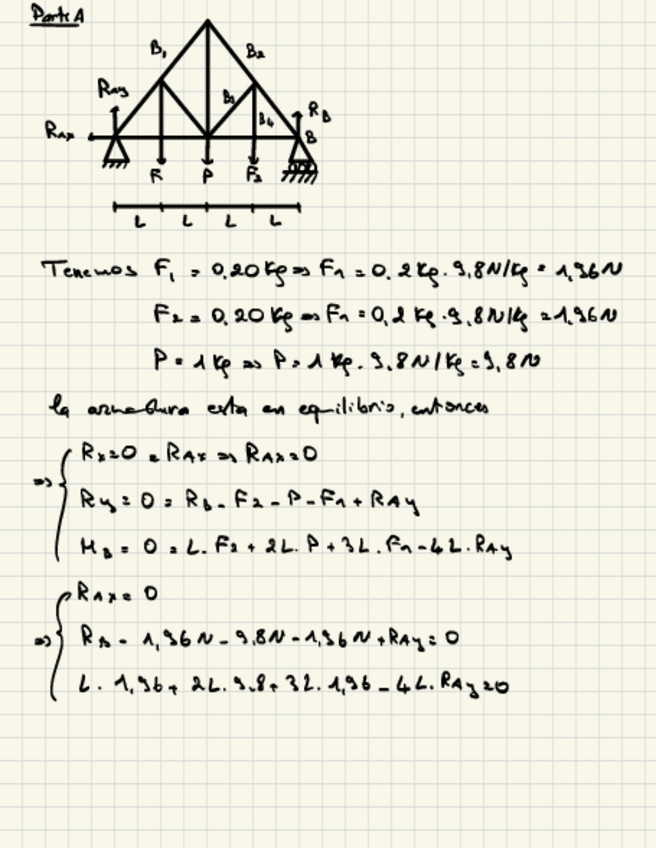 Parte A
B₁ B₂
RAy B₃ RB
RAx B₄ B
F₁ P F₂
L L L L
Tenemos F₁ = 0,20 Kg => F₁ = 0,2 Kg . 9,8 N/Kg = 1,96 N
F₂ = 0,20 Kg => F₁ = 0,2 Kg . 9,8 N/Kg = 1,96 N
P = 1 Kg => P = 1 Kg . 9,8 N/Kg = 9,8 N
la armadura esta en equilibrio, entonces
=> { Rx = 0 = RAx => RAx = 0
Ry = 0 = RB - F₂ - P - F₁ + RAy
MB = 0 = L . F₂ + 2L . P + 3L . F₁ - 4L . RAy
=> { RAx = 0
RB - 1,96 N - 9,8 N - 1,96 N + RAy = 0
L . 1,96 + 2L . 9.8 + 3L . 1,96 - 4L . RAy = 0